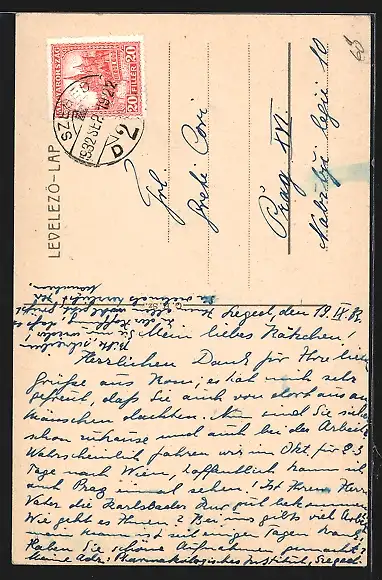 LEVELEZŐ-LAP
MAGYARORSZÁG
20 FILLÉR 20
SZEGED 2
932 SEP 19 22
D
Frl
Greti Cori
Prag XVI.
Nábřeží legií 10
Szeged, den 19. IX. 32.
Mein liebes Kätzchen!
Herzlichen Dank für Ihre lieben
Grüße aus Rom, es hat mich sehr
gefreut, daß Sie auch von dort aus an
dachten. Nun sind Sie sicher
schon zuhause und auch bei der Arbeit
Wahrscheinlich fahren wir im Okt. für 2-3
Tage nach Wien, hoffentlich kann ich
auch Prag einmal sehen. Hat Ihrem Herrn
Vater die Karlsbader Kur gut bekommen
Wie geht es Ihnen? Bei uns gibts viel Arbeit
mein Mann ist seit einigen Tagen krank.
Haben Sie schöne Aufnahmen gemacht?
Meine Adr.: Pharmakologisches Institut, Szeged